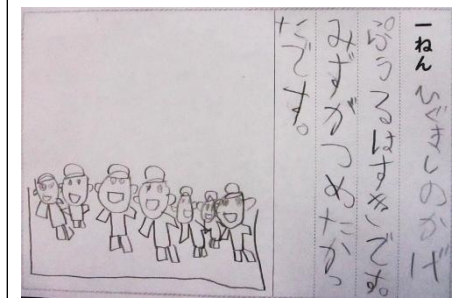 一ねん ひぐましのかげ
ぷうるはすきです。
みずがつめたかっ
たです。